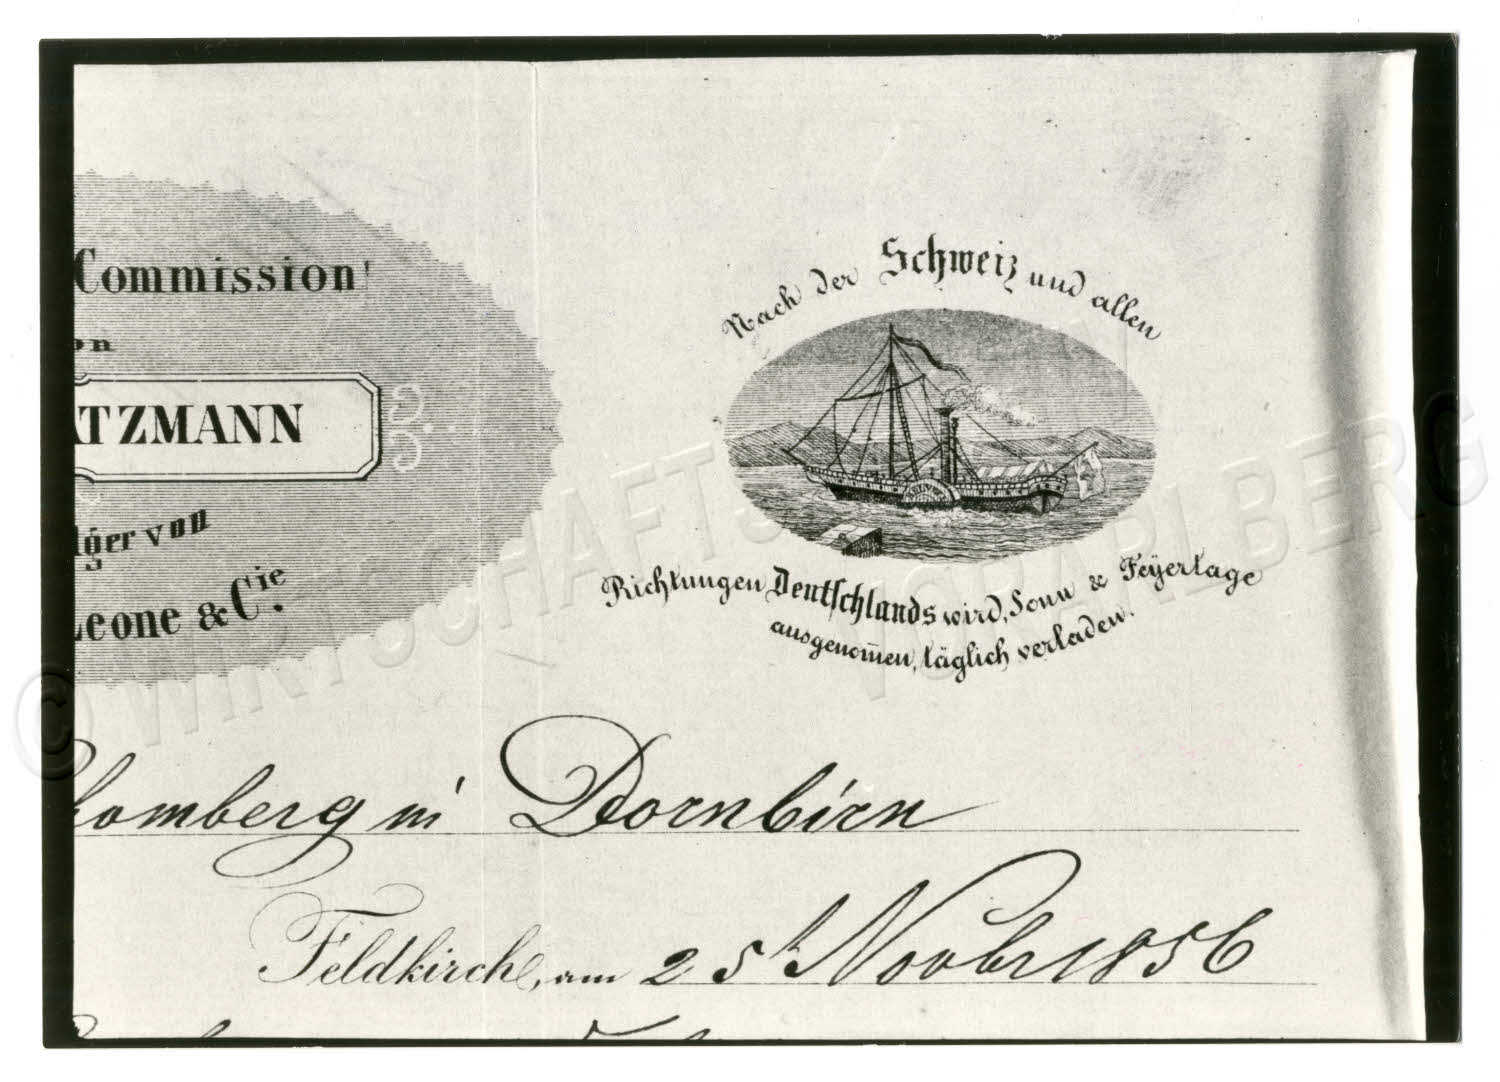 Commission!
on
ATZMANN
lger von
Leone & Cie.
Nach der Schweiz und allen
Richtungen Deutschlands wird, Sonn & Feÿertage
ausgenom̅en, täglich verladen.
homberg in Dornbirn
Feldkirch, am 25t Novbr 1856
© WIRTSCHAFTSARCHIV VORARLBERG